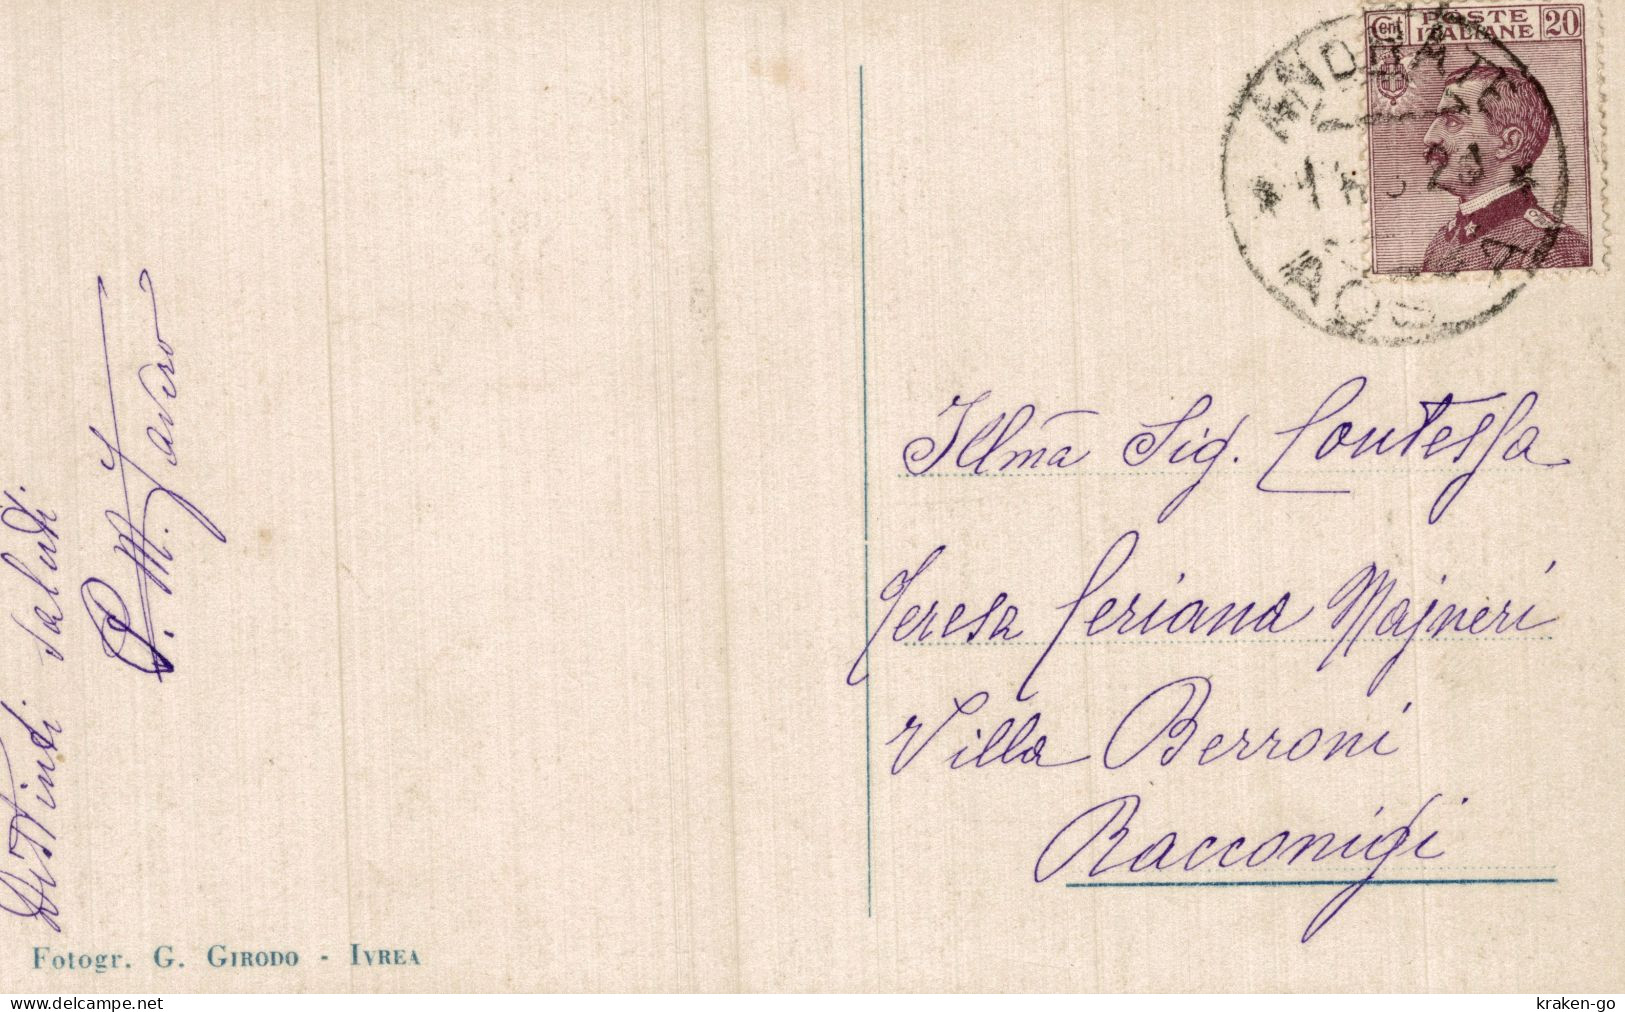 Cent POSTE ITALIANE 20
ANDRATE
AOSTA
Distinti saluti.
P. M. Favero
Illma Sig. Contessa
Teresa Ceriana Majneri
Villa Berroni
Racconigi
Fotogr. G. GIRODO - IVREA
www.delcampe.net
kraken-go